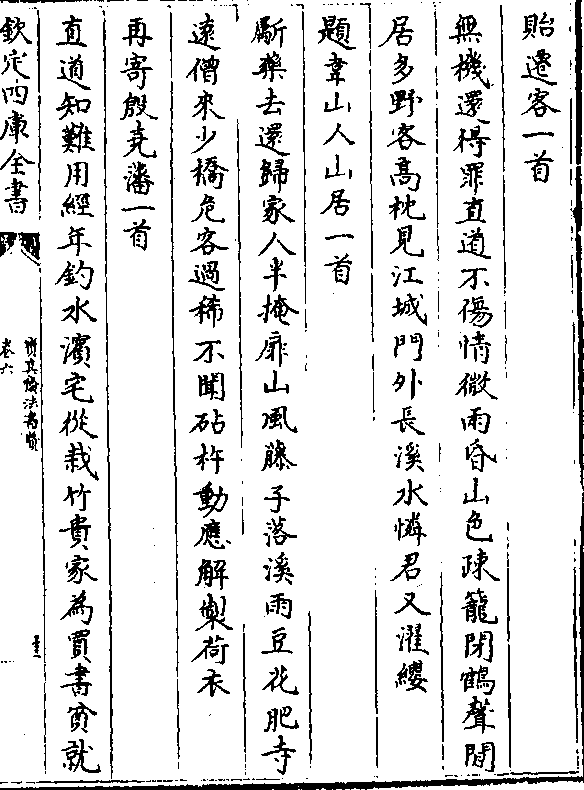 貽遷客一首
無機還得罪直道不傷情微雨昏山色疎籠閉鶴聲閒
居多野客高枕見江城門外長溪水憐君又濯纓
題韋山人山居一首
斸藥去還歸家人半掩扉山風藤子落溪雨豆花肥寺
遠僧來少橋危客過稀不聞砧杵動應解製荷衣
再寄殷堯藩一首
直道知難用經年釣水濱宅從栽竹貴家為買書貧就
欽定四庫全書
寶真齋法書贊
卷六